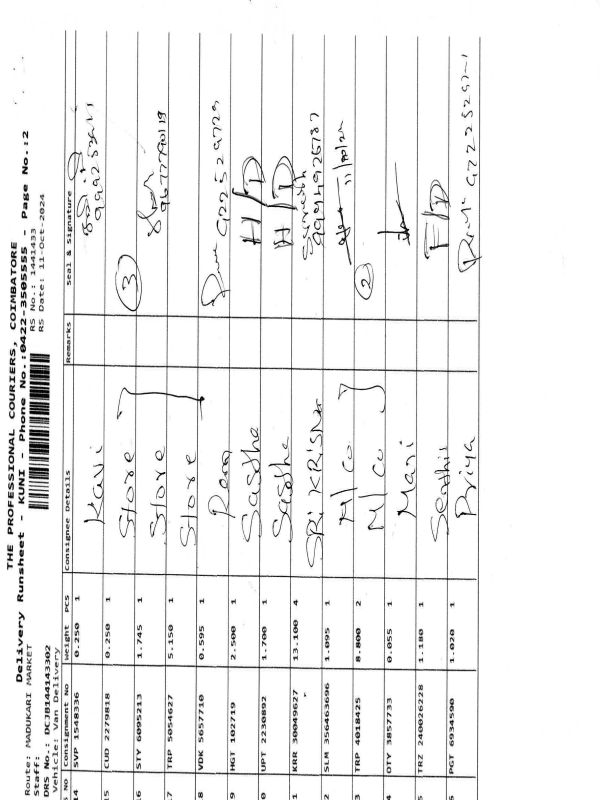 THE PROFESSIONAL COURIERS, COIMBATORE
Delivery Runsheet - KUNI - Phone No.:0422-3505555 - Page No.:2
Route: MADUKARI MARKET
RS No.: 1441433
Staff:
RS Date: 11-Oct-2024
DRS No.: DCJB144143302
Vehicle: Van Delivery
No Consignment No Weight PCS Consignee Details Remarks Seal & Signature
14 SVP 1548336 0.250 1 Kavi
15 CUD 2279818 0.250 1 Store 3
16 STY 6095213 1.745 1 Store 9677790119
17 TRP 5054627 5.150 1 Store
18 VDK 5657710 0.595 1
19 HGT 102719 2.500 1 Sasdha H/D
20 UPT 2230892 1.700 1 Sasdha H/D
21 KRR 30049627 13.100 4 SRI KRISNA Suresh
22 SLM 356463696 1.095 1 M/Co 11/10/24
23 TRP 4018425 8.800 2 M/Co 2
24 OTY 3857733 0.055 1 Mani
25 TRZ 240026228 1.180 1 Senthil F/D
PGT 6934590 1.020 1 Priya